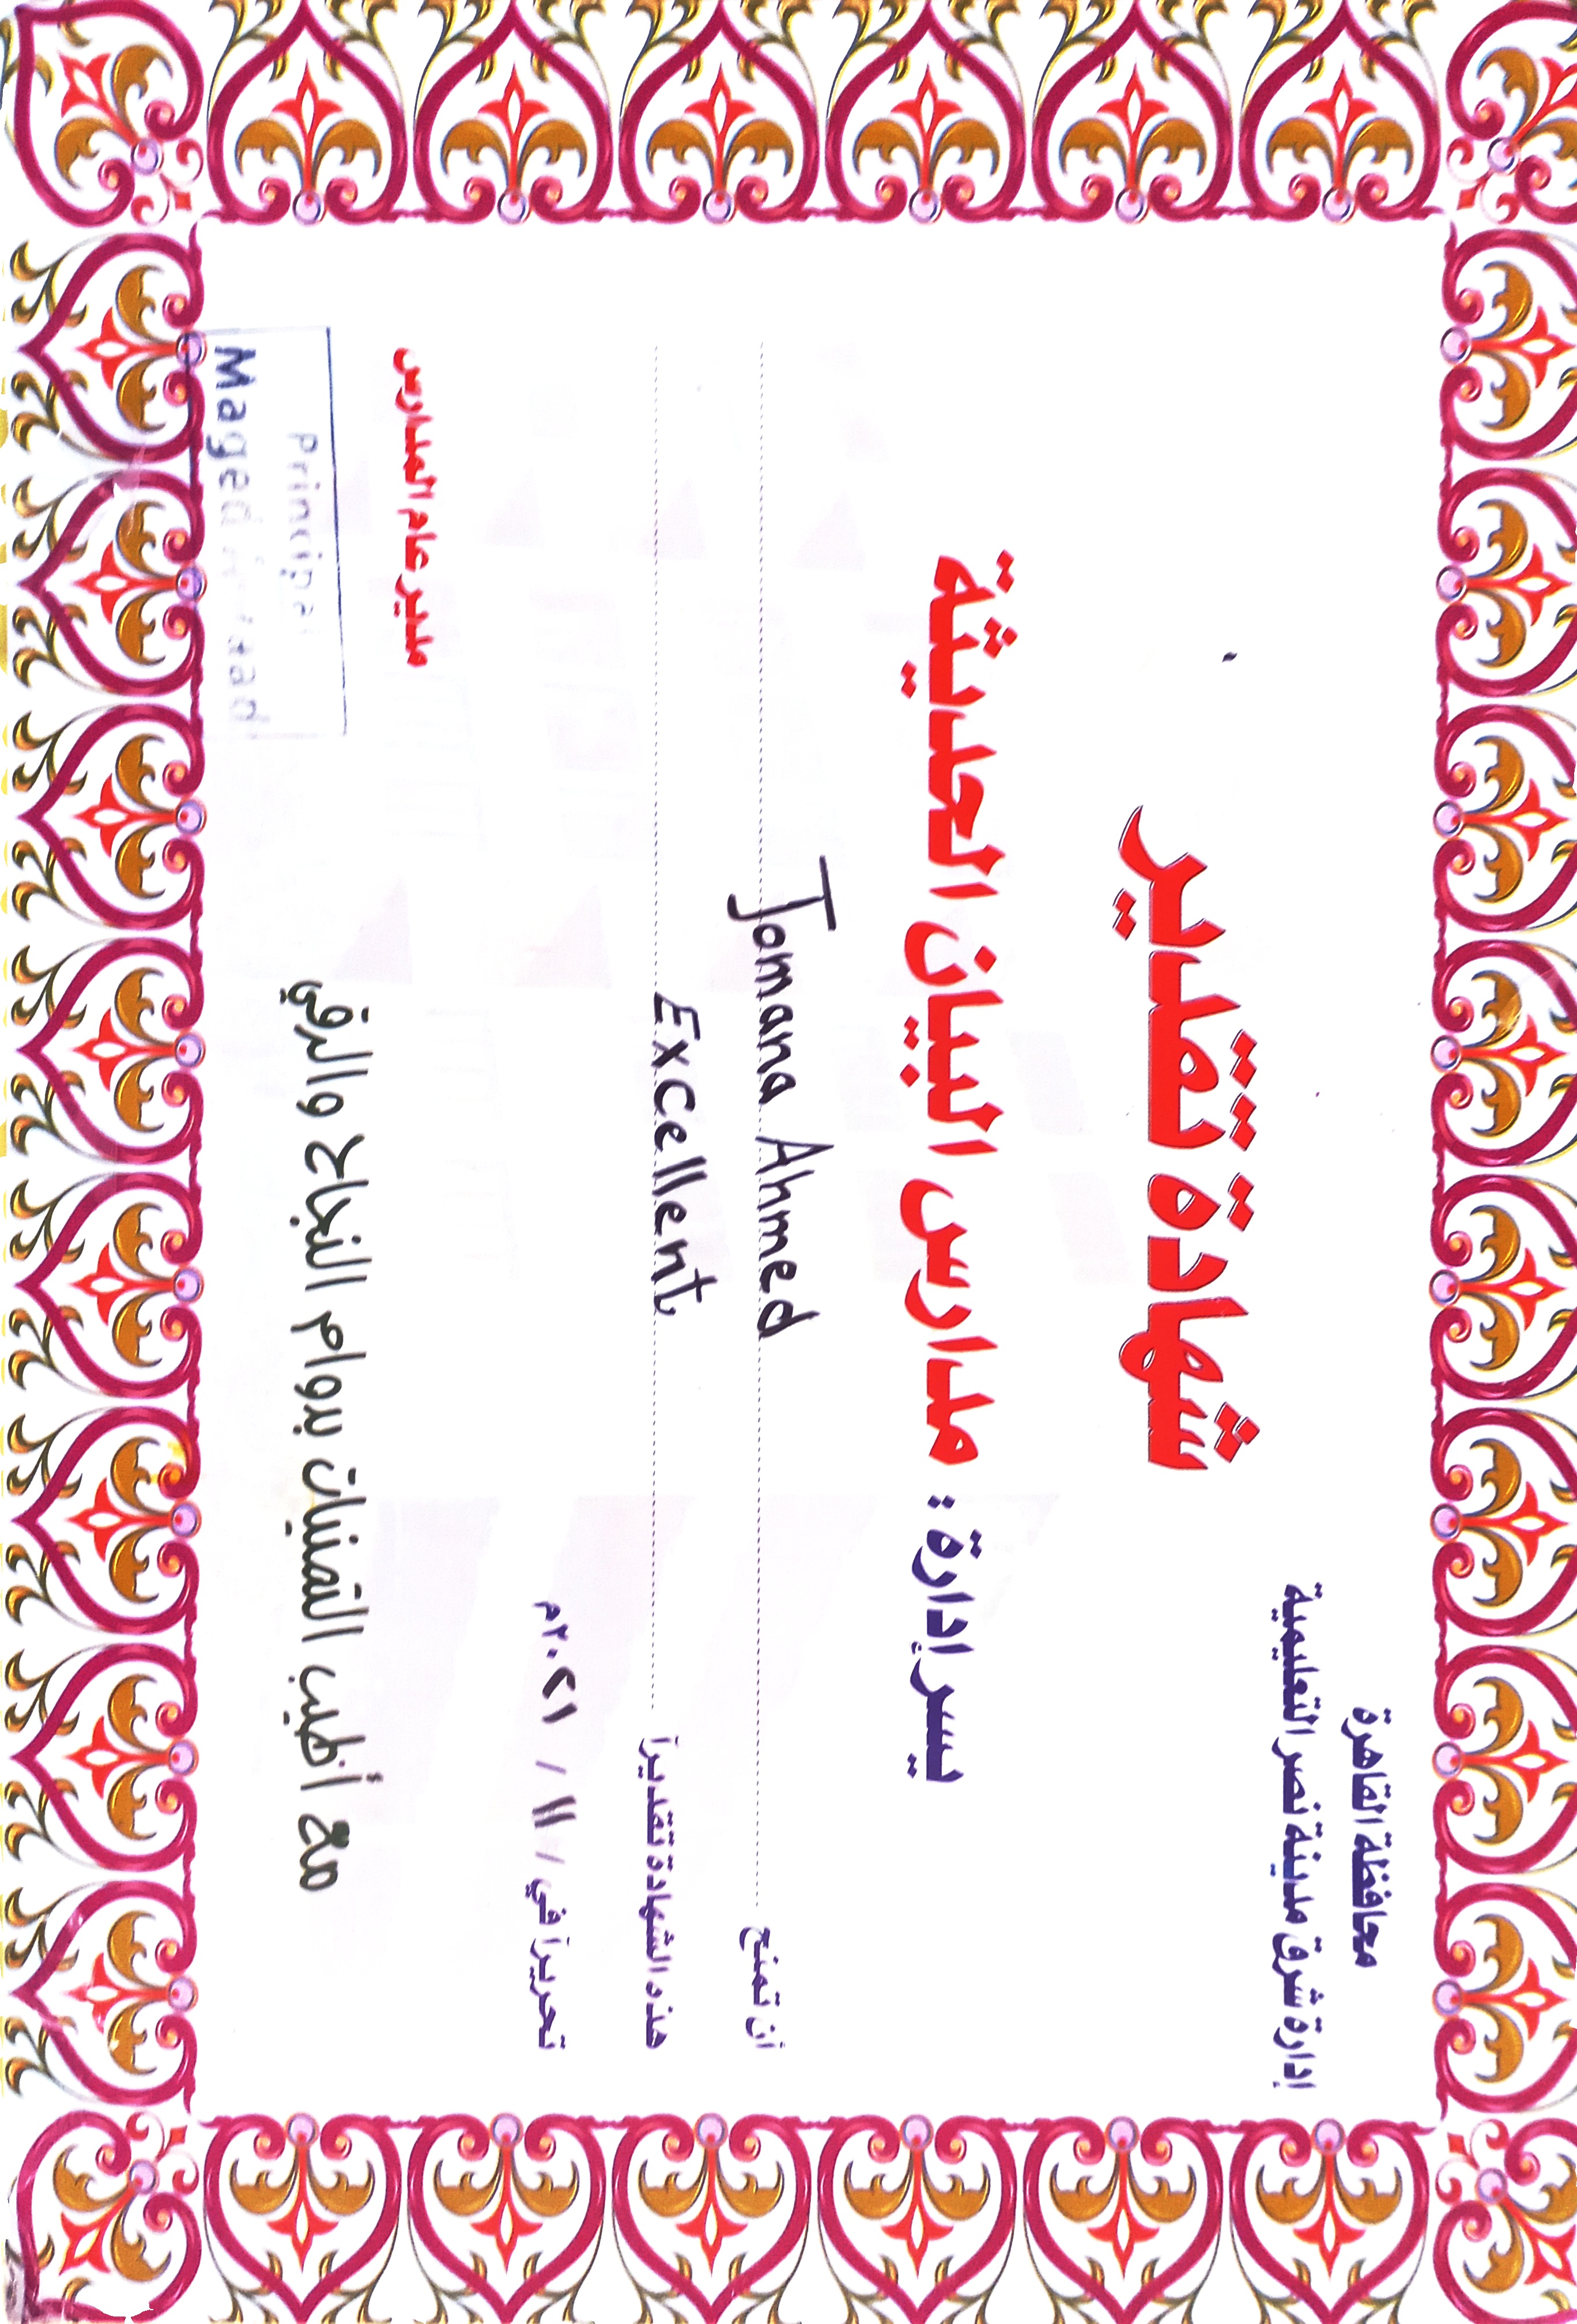 محافظة القاهرة
إدارة شرق مدينة نصر التعليمية
شهادة تقدير
يسر إدارة : مدارس البيان الحديثة
أن تمنح Jomana Ahmed
هذه الشهادة تقديراً Excellent
تحريراً في / ١١ / ٢٠٢١م
مع أطيب التمنيات بدوام النجاح والرقي
مدير عام المدارس
Principal
Maged